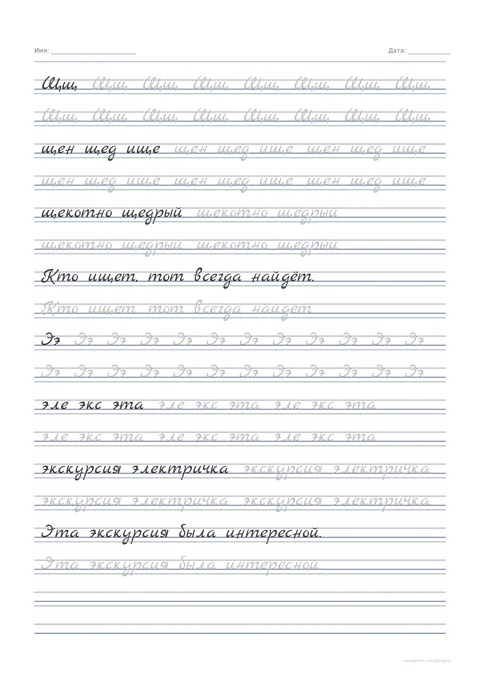 Имя: Дата:
Щщ Щщ Щщ Щщ Щщ Щщ Щщ Щщ
Щщ Щщ Щщ Щщ Щщ Щщ Щщ Щщ
щен щед ище щен щед ище щен щед ище
щен щед ище щен щед ище щен щед ище
щекотно щедрый щекотно щедрый
щекотно щедрый щекотно щедрый
Кто ищет, тот всегда найдёт.
Кто ищет тот всегда найдёт
Ээ Ээ Ээ Ээ Ээ Ээ Ээ Ээ Ээ Ээ Ээ Ээ
Ээ Ээ Ээ Ээ Ээ Ээ Ээ Ээ Ээ Ээ Ээ Ээ
эле экс эта эле экс эта эле экс эта
эле экс эта эле экс эта эле экс эта
экскурсия электричка экскурсия электричка
экскурсия электричка экскурсия электричка
Эта экскурсия была интересной.
Эта экскурсия была интересной